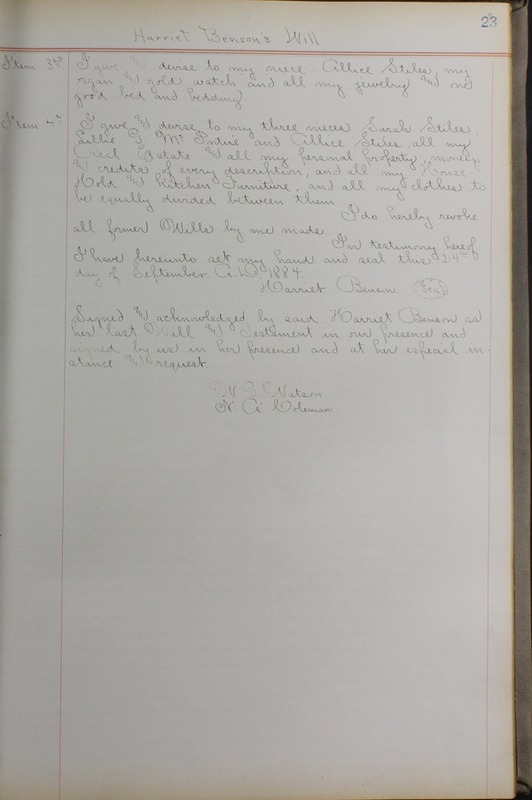 23
Harriet Benson's Will
Item 3rd I give and devise to my niece Allice Stiles, my
organ and gold watch and all my jewelry and one
good bed and bedding
Item 4th I give and devise to my three nieces Sarah Stiles,
Lillie G McIntire and Allice Stiles all my
Real Estate and all my personal property, moneys
and credits of every description, and all my House
Hold and Kitchen Furniture, and all my clothes to
be equally divided between them
I do hereby revoke
all former Wills by me made
In testimony hereof
I have hereunto set my hand and seal this 24th
day of September. A.D. 1884.
Harriet Benson Seal
Signed and acknowledged by said Harriet Benson as
her last Will and Testament in our presence and
signed by us in her presence and at her especial in-
stance and request.
Watson
N. A. Coleman